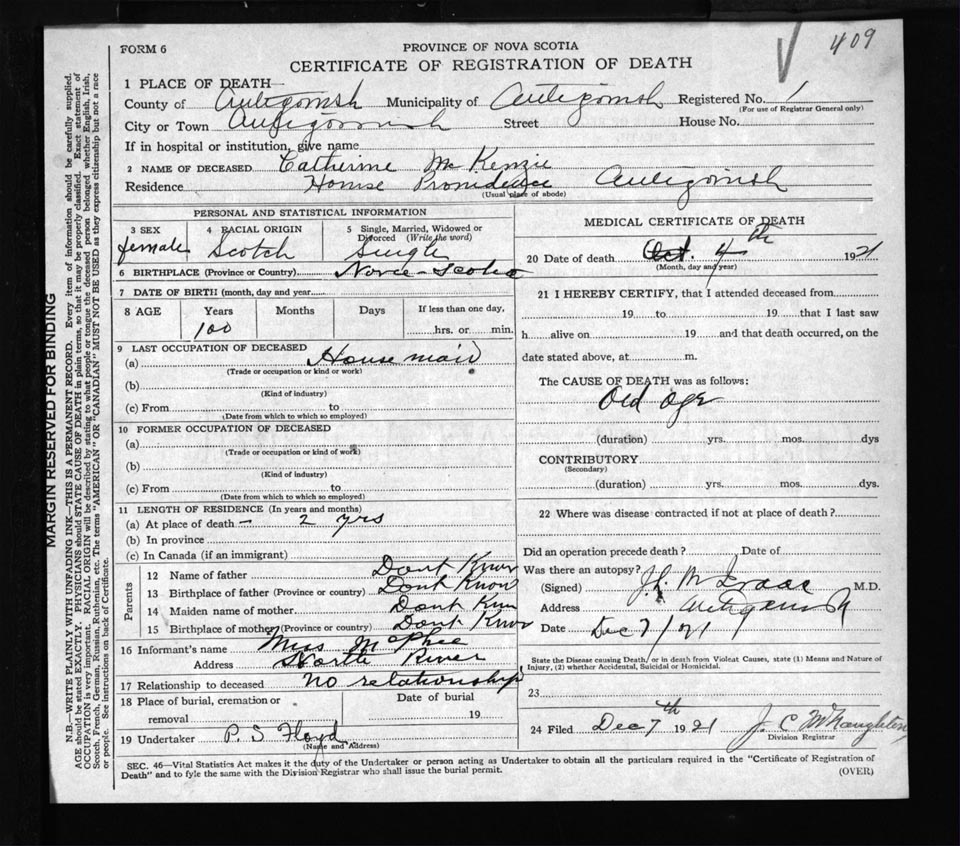 409
FORM 6
PROVINCE OF NOVA SCOTIA
CERTIFICATE OF REGISTRATION OF DEATH
1 PLACE OF DEATH—
County of Antigonish Municipality of Antigonish Registered No. 1
(For use of Registrar General only)
City or Town Antigonish Street House No.
If in hospital or institution, give name
2 NAME OF DECEASED Catherine McKenzie
Residence House Providence Antigonish
(Usual place of abode)
PERSONAL AND STATISTICAL INFORMATION
3 SEX female
4 RACIAL ORIGIN Scotch
5 Single, Married, Widowed or Divorced (Write the word) Single
6 BIRTHPLACE (Province or Country) Nova-Scotia
7 DATE OF BIRTH (month, day and year)
8 AGE Years Months Days If less than one day,
100 hrs. or min.
9 LAST OCCUPATION OF DECEASED
(a) House maid
(Trade or occupation or kind or work)
(b)
(Kind of industry)
(c) From to
(Date from which to which so employed)
10 FORMER OCCUPATION OF DECEASED
(a)
(Trade or occupation or kind of work)
(b)
(Kind of industry)
(c) From to
(Date from which to which so employed)
11 LENGTH OF RESIDENCE (In years and months)
(a) At place of death— 2 yrs
(b) In province
(c) In Canada (if an immigrant)
Parents
12 Name of father Dont Know
13 Birthplace of father (Province or country) Dont Know
14 Maiden name of mother Dont Know
15 Birthplace of mother (Province or country) Dont Know
16 Informant's name Miss McPhee
Address North River
17 Relationship to deceased no relationship
18 Place of burial, cremation or removal
Date of burial
19
19 Undertaker P. S Floyd
(Name and Address)
MEDICAL CERTIFICATE OF DEATH
20 Date of death Oct. 4th 1921
(Month, day and year)
21 I HEREBY CERTIFY, that I attended deceased from
19 to 19 that I last saw
h alive on 19 and that death occurred, on the
date stated above, at m.
The CAUSE OF DEATH was as follows:
Old age
(duration) yrs. mos. dys
CONTRIBUTORY
(Secondary)
(duration) yrs. mos. dys.
22 Where was disease contracted if not at place of death?
Did an operation precede death? Date of
Was there an autopsy?
(Signed) M.D.
Address Antigonish
Date Dec 7/21
State the Disease causing Death, or in death from Violent Causes, state (1) Means and Nature of
Injury, (2) whether Accidental, Suicidal or Homicidal.
23
24 Filed Dec 7th 1921 J. C McNaughton
Division Registrar
SEC. 46—Vital Statistics Act makes it the duty of the Undertaker or person acting as Undertaker to obtain all the particulars required in the "Certificate of Registration of
Death" and to fyle the same with the Division Registrar who shall issue the burial permit.
(OVER)
MARGIN RESERVED FOR BINDING
N.B.—WRITE PLAINLY WITH UNFADING INK—THIS IS A PERMANENT RECORD. Every item of information should be carefully supplied.
AGE should be stated EXACTLY. PHYSICIANS should STATE CAUSE OF DEATH in plain terms, so that it may be properly classified. Exact statement of
OCCUPATION is very important. RACIAL ORIGIN will be described by stating to what people or tongue the deceased person belonged whether English, Irish,
Scotch, French, German, Russian, Ruthenian, etc. The terms "AMERICAN" OR "CANADIAN" MUST NOT BE USED as they express citizenship but not a race
or people. See instructions on back of Certificate.